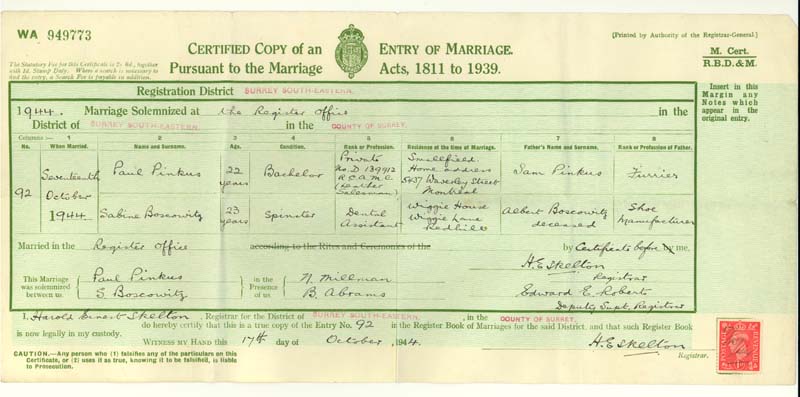 WA 949773
CERTIFIED COPY of an ENTRY OF MARRIAGE.
Pursuant to the Marriage Acts, 1811 to 1939.
[Printed by Authority of the Registrar-General.]
M. Cert.
R.B.D.&M.
The Statutory Fee for this Certificate is 2s. 6d., together
with 1d. Stamp Duty. Where a search is necessary to
find the entry, a Search Fee is payable in addition.
Insert in this
Margin any
Notes which
appear in the
original entry.
Registration District SURREY SOUTH-EASTERN.
1944. Marriage Solemnized at the Register Office in the
District of SURREY SOUTH-EASTERN. in the COUNTY OF SURREY.
Columns:— 1 2 3 4 5 6 7 8
No. When Married. Name and Surname. Age. Condition. Rank or Profession. Residence at the time of Marriage. Father's Name and Surname. Rank or Profession of Father.
92
Seventeenth
October
1944
Paul Pinkus
22
years
Bachelor
Private
No. D 139912
R.C.A.M.C.
(Leather
Salesman)
Smallfield.
Home address
5437 Waverley Street
Montreal
Sam Pinkus
Furrier
Sabine Boscowitz
23
years
Spinster
Dental
Assistant
Wiggie House
Wiggie Lane
Redhill
Albert Boscowitz
deceased
Shoe
Manufacturer
Married in the Register Office according to the Rites and Ceremonies of the by Certificate before by me.
This Marriage
was solemnized
between us,
Paul Pinkus
S. Boscowitz
in the
Presence
of us
N. Millman
B. Abrams
H.E. Skelton
Registrar
Edward E. Roberts
Deputy Supt. Registrar
I, Harold Ernest Skelton, Registrar for the District of SURREY SOUTH-EASTERN, in the COUNTY OF SURREY,
do hereby certify that this is a true copy of the Entry No. 92 in the Register Book of Marriages for the said District, and that such Register Book
is now legally in my custody.
WITNESS MY HAND this 17th day of October, 1944.
H.E. Skelton
Registrar.
CAUTION.—Any person who (1) falsifies any of the particulars on this
Certificate, or (2) uses it as true, knowing it to be falsified, is liable
to Prosecution.
POSTAGE
REVENUE